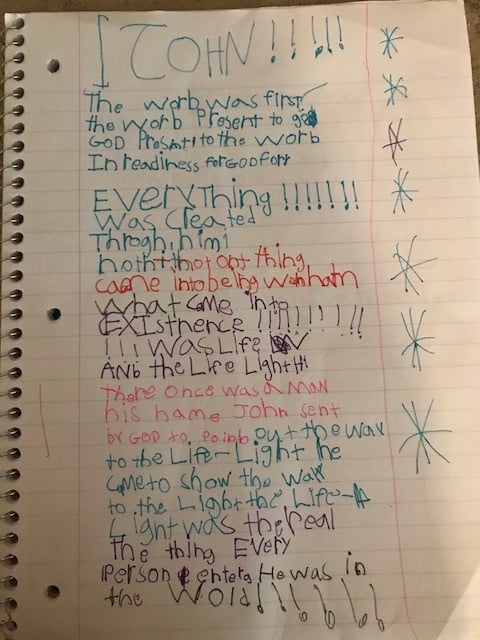 1 JOHN!!!!!
The worb was first
the worb Present to god
GOD Present to the worb
In readiness for GOD for
EVERYThing!!!!!!!
was created
Throgh, him!
noth thot ont thing
came into being
What came into
EXISthence!!!!!!!!
!!! was Life
ANb the Life Light
There once was a man
his name John sent
by GOD to out the way
to the Life-Light he
came to show the way
to the Light the Life-
Light was the real
The thing Every
person enters He was in
the WOrld!!!!!!!